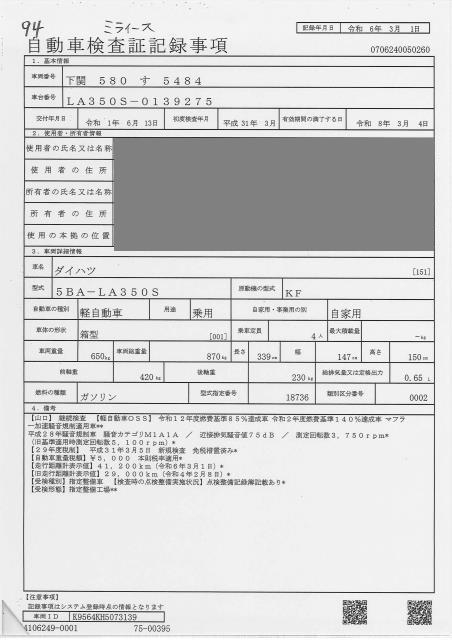 94 ミライース
記録年月日 令和 6年 3月 1日
自動車検査証記録事項
0706240050260
1. 基本情報
車両番号 下関 580 す 5484
車台番号 LA350S-0139275
交付年月日 令和 1年 6月 13日 初度検査年月 平成 31年 3月 有効期間の満了する日 令和 8年 3月 4日
2. 使用者・所有者情報
使用者の氏名又は名称
使用者の住所
所有者の氏名又は名称
所有者の住所
使用の本拠の位置
3. 車両詳細情報
車名 ダイハツ [151]
型式 5BA-LA350S 原動機の型式 KF
自動車の種別 軽自動車 用途 乗用 自家用・事業用の別 自家用
車体の形状 箱型 [001] 乗車定員 4人 最大積載量 -kg
車両重量 650kg 車両総重量 870kg 長さ 339cm 幅 147cm 高さ 150cm
前軸重 420kg 後軸重 230kg 総排気量又は定格出力 0.65 L
燃料の種類 ガソリン 型式指定番号 18736 類別区分番号 0002
4. 備考
【山口】 継続検査 【軽自動車OSS】 令和12年度燃費基準85%達成車 令和2年度燃費基準140%達成車 マフラ
ー加速騒音規制適用車**
平成28年騒音規制車 騒音カテゴリM1A1A / 近接排気騒音値75dB / 測定回転数3,750rpm*
(旧基準適用時測定回転数5,100rpm)*
【29年度税制】 平成31年3月5日 新規検査 免税措置済み*
【自動車重量税額】¥5,000 本則税率適用*
【走行距離計表示値】41,200km(令和6年3月1日)*
【旧走行距離計表示値】29,000km(令和4年2月8日)*
【受検種別】指定整備車 【検査時の点検整備実施状況】点検整備記録簿記載あり*
【受検形態】指定整備工場**
【注意事項】
記録事項はシステム登録時点の情報となります
車両ID K9564KH5073139
4106249-0001 75-00395